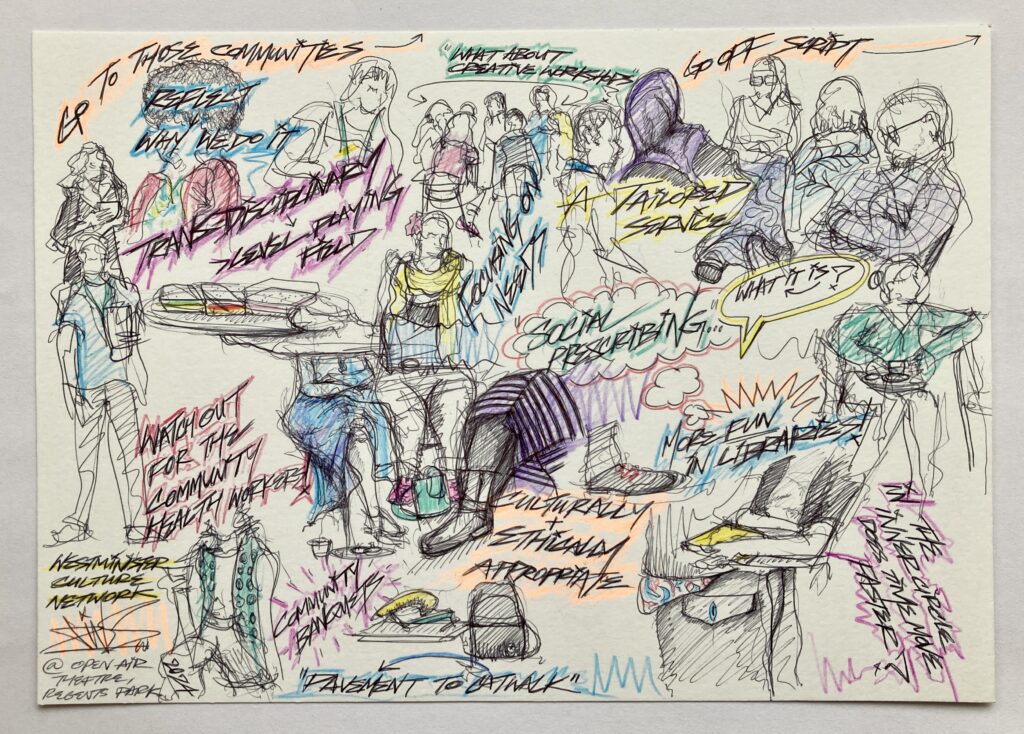 UP TO THOSE COMMUNITIES →
"WHAT ABOUT
CREATIVE WORKSHOP"
GO OFF SCRIPT →
REFLECT
WHY WE DO IT
TRANSDISCIPLINARY
> LEVEL PLAYING
FIELD
FOCUSING ON
NEED?
A TAILORED
SERVICE
"SOCIAL
PRESCRIBING...
WHAT IT IS?
MORE FUN
IN LIBRARIES!
WATCH OUT
FOR THE
COMMUNITY
HEALTH WORKERS!
CULTURALLY
+
ETHICALLY
APPROPRIATE
IN THE
DOES TIME MOVE
FASTER
?
WESTMINSTER
CULTURE
NETWORK
@ OPEN AIR
THEATRE,
REGENTS PARK
COMMUNITY
BANQUETS
"PAVEMENT TO CATWALK"